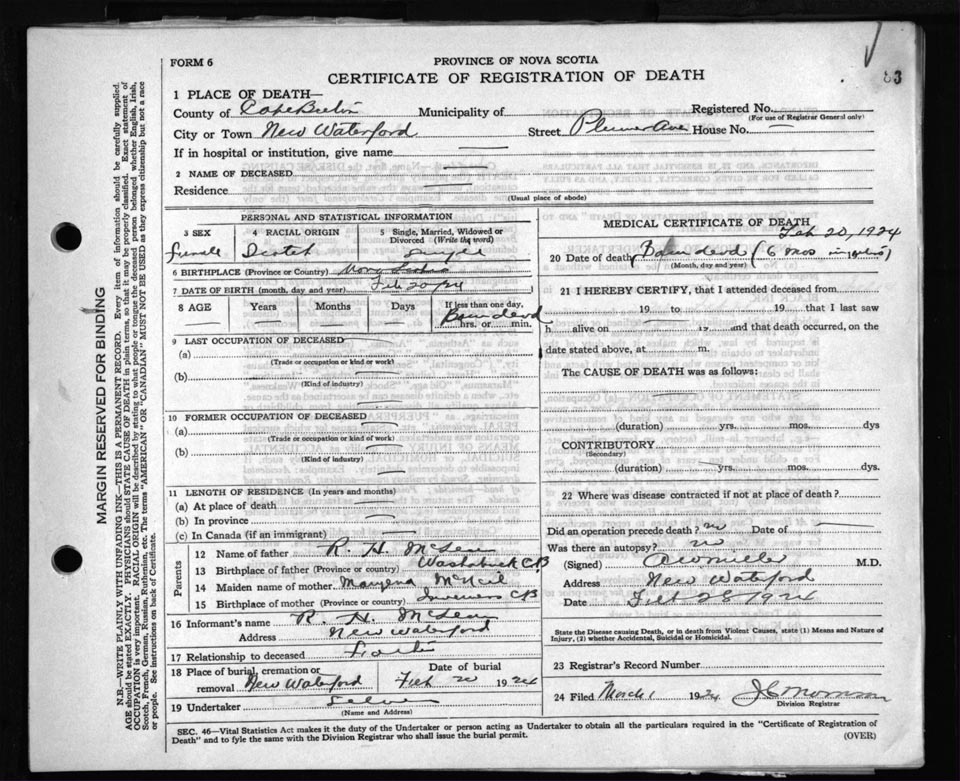 FORM 6
PROVINCE OF NOVA SCOTIA
CERTIFICATE OF REGISTRATION OF DEATH
83
1 PLACE OF DEATH—
County of Cape Breton Municipality of Registered No.
(For use of Registrar General only)
City or Town New Waterford Street Plummer Ave House No. —
If in hospital or institution, give name —
2 NAME OF DECEASED —
Residence —
(Usual place of abode)
PERSONAL AND STATISTICAL INFORMATION
3 SEX
4 RACIAL ORIGIN
5 Single, Married, Widowed or Divorced (Write the word)
Female Scotch Single
6 BIRTHPLACE (Province or Country) Nova Scotia
7 DATE OF BIRTH (month, day and year) Feb 20/24
8 AGE Years Months Days If less than one day, hrs. or min.
Born dead
9 LAST OCCUPATION OF DECEASED
(a) —
(Trade or occupation or kind or work)
(b) —
(Kind of industry)
10 FORMER OCCUPATION OF DECEASED
(a) —
(Trade or occupation or kind of work)
(b) —
(Kind of industry)
11 LENGTH OF RESIDENCE (In years and months)
(a) At place of death —
(b) In province —
(c) In Canada (if an immigrant) —
Parents
12 Name of father R. H. McLean
13 Birthplace of father (Province or country) Washabuck CB
14 Maiden name of mother McNeil
15 Birthplace of mother (Province or country) Inverness CB
16 Informant's name R. H. McLean
Address New Waterford
17 Relationship to deceased Father
18 Place of burial, cremation or removal New Waterford Date of burial Feb 20 1924
19 Undertaker
(Name and Address)
MEDICAL CERTIFICATE OF DEATH
Feb 20, 1924
20 Date of death Born dead (6 mos
(Month, day and year)
21 I HEREBY CERTIFY, that I attended deceased from
19 to 19 that I last saw
h alive on 19 and that death occurred, on the
date stated above, at m.
The CAUSE OF DEATH was as follows:
(duration) yrs. mos. dys
CONTRIBUTORY
(Secondary)
(duration) yrs. mos. dys.
22 Where was disease contracted if not at place of death?
Did an operation precede death? no Date of —
Was there an autopsy? no
(Signed) M.D.
Address New Waterford
Date Feb 28 1924
State the Disease causing Death, or in death from Violent Causes, state (1) Means and Nature of
Injury, (2) whether Accidental, Suicidal or Homicidal.
23 Registrar's Record Number
24 Filed March 1 1924 J C Morrison
Division Registrar
SEC. 46—Vital Statistics Act makes it the duty of the Undertaker or person acting as Undertaker to obtain all the particulars required in the "Certificate of Registration of
Death" and to fyle the same with the Division Registrar who shall issue the burial permit. (OVER)
MARGIN RESERVED FOR BINDING
N.B.—WRITE PLAINLY WITH UNFADING INK—THIS IS A PERMANENT RECORD. Every item of information should be carefully supplied.
AGE should be stated EXACTLY. PHYSICIANS should STATE CAUSE OF DEATH in plain terms, so that it may be properly classified. Exact statement of
OCCUPATION is very important. RACIAL ORIGIN will be described by stating to what people or tongue the deceased person belonged whether English, Irish,
Scotch, French, German, Russian, Ruthenian, etc. The terms "AMERICAN" or "CANADIAN" MUST NOT BE USED as they express citizenship but not a race
or people. See instructions on back of Certificate.